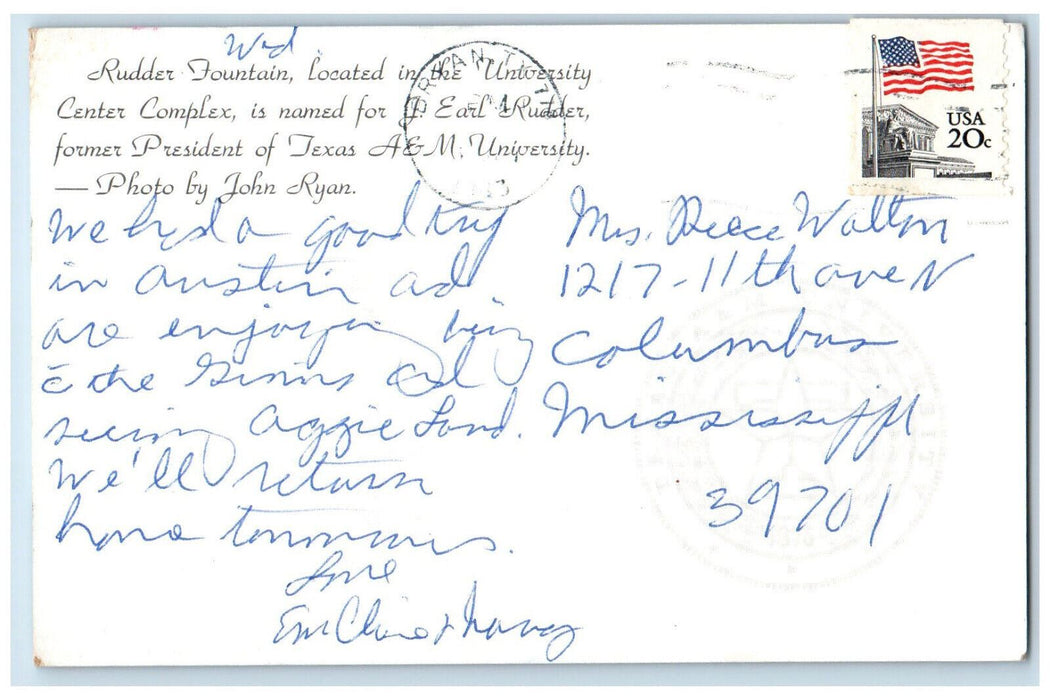 Wed
Rudder Fountain, located in the University
Center Complex, is named for J. Earl Rudder,
former President of Texas A&M University.
— Photo by John Ryan.
BRYAN, TX
USA
20c
We had a good trip
in Austin ad
are enjoying being
c̄ the Ginns ad
seeing Aggie Land.
We'll return
home tomorrow.
Love
Mrs. Reece Walton
1217-11th ave N
Columbus
Mississippi
39701